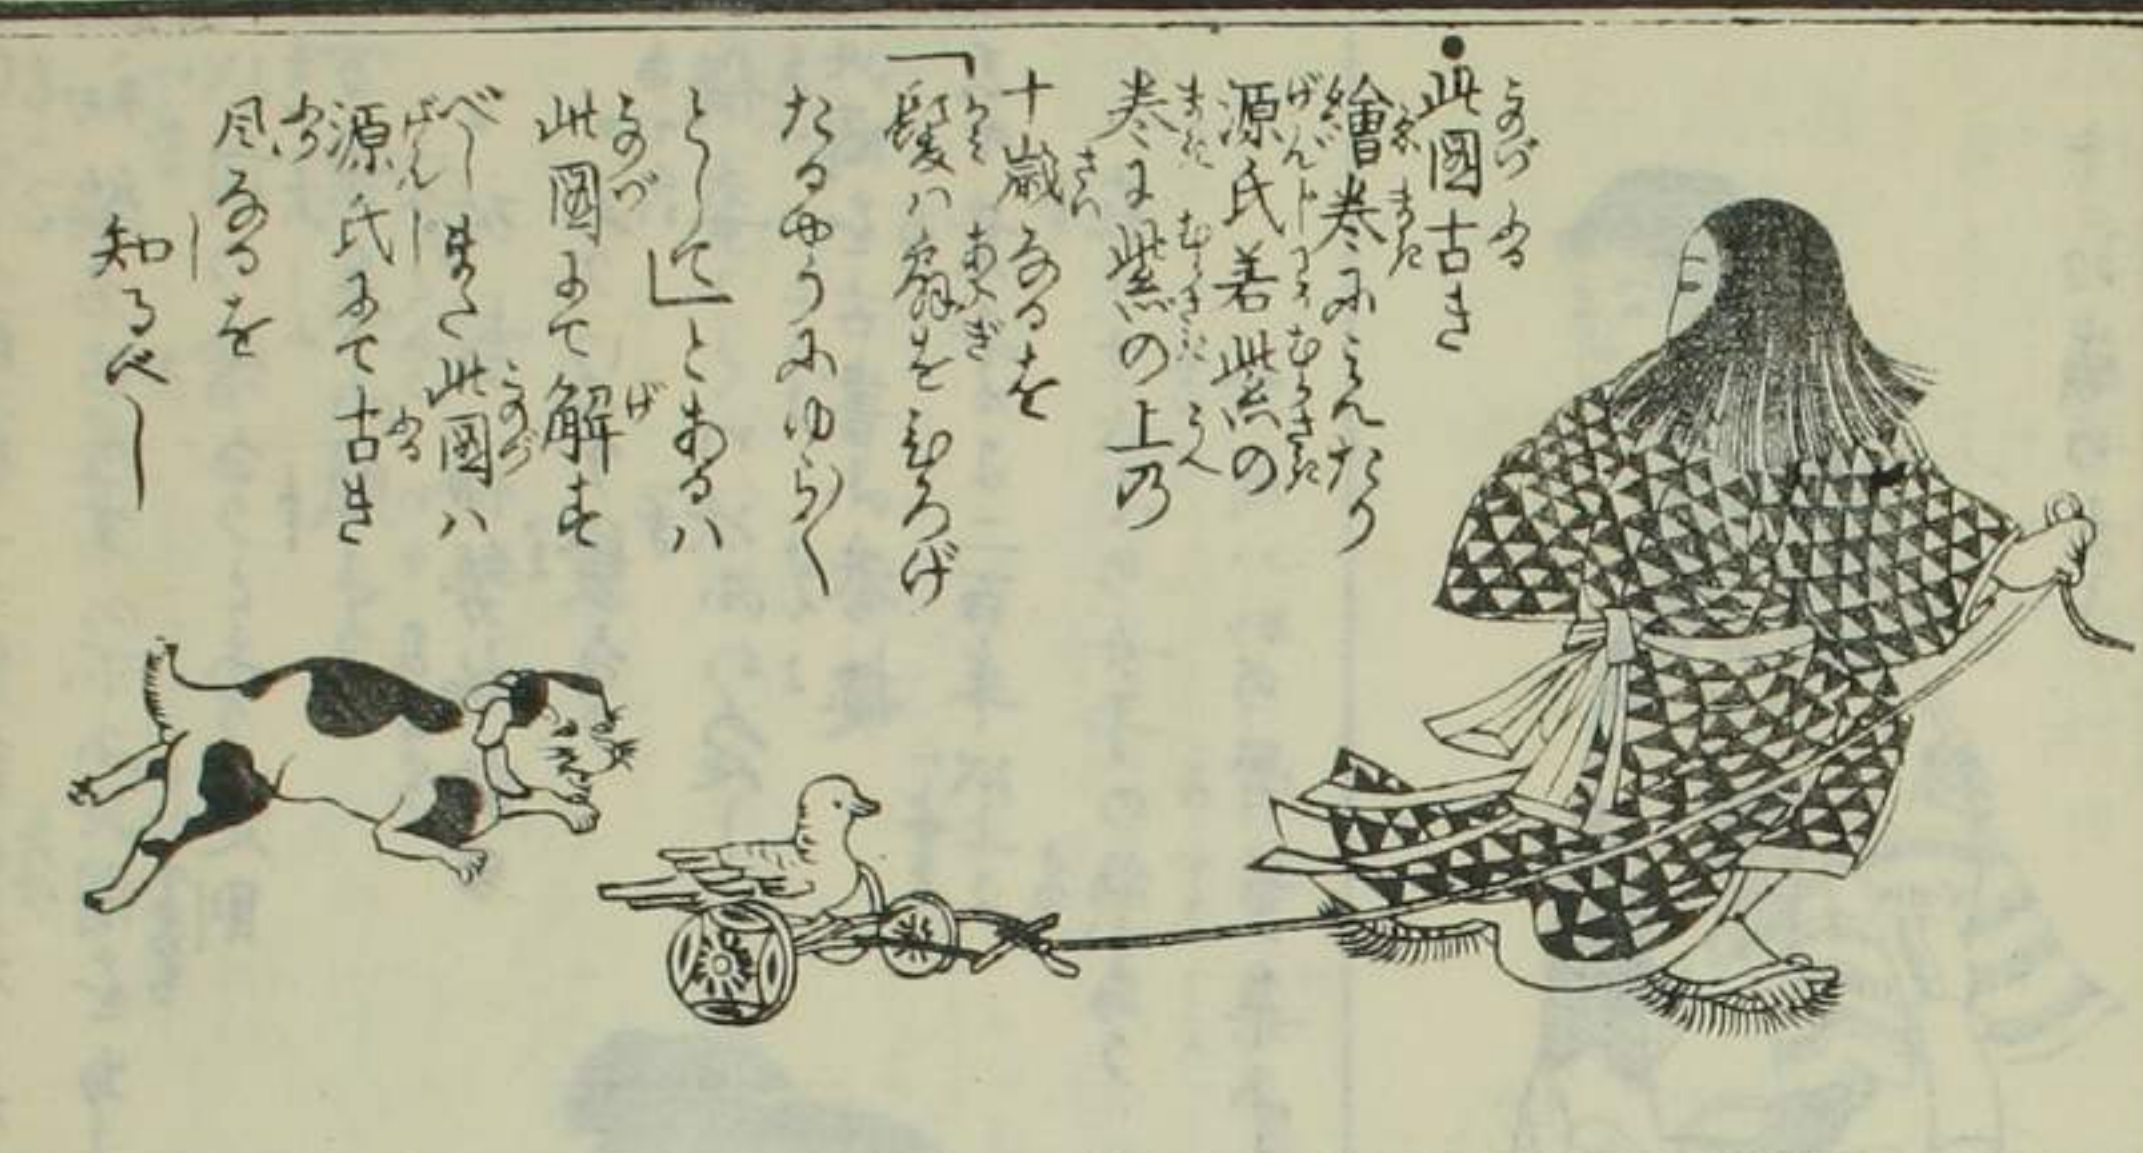 ●此圖古き
繪巻にみえたり
源氏若紫の
巻に紫の上乃
十歳なるを
「髪ハ扇をひろげ
たるやうにゆら〱
として」とあるハ
此圖にて解す
べしまた此圖ハ
源氏にて古き
風なるを
知るべし